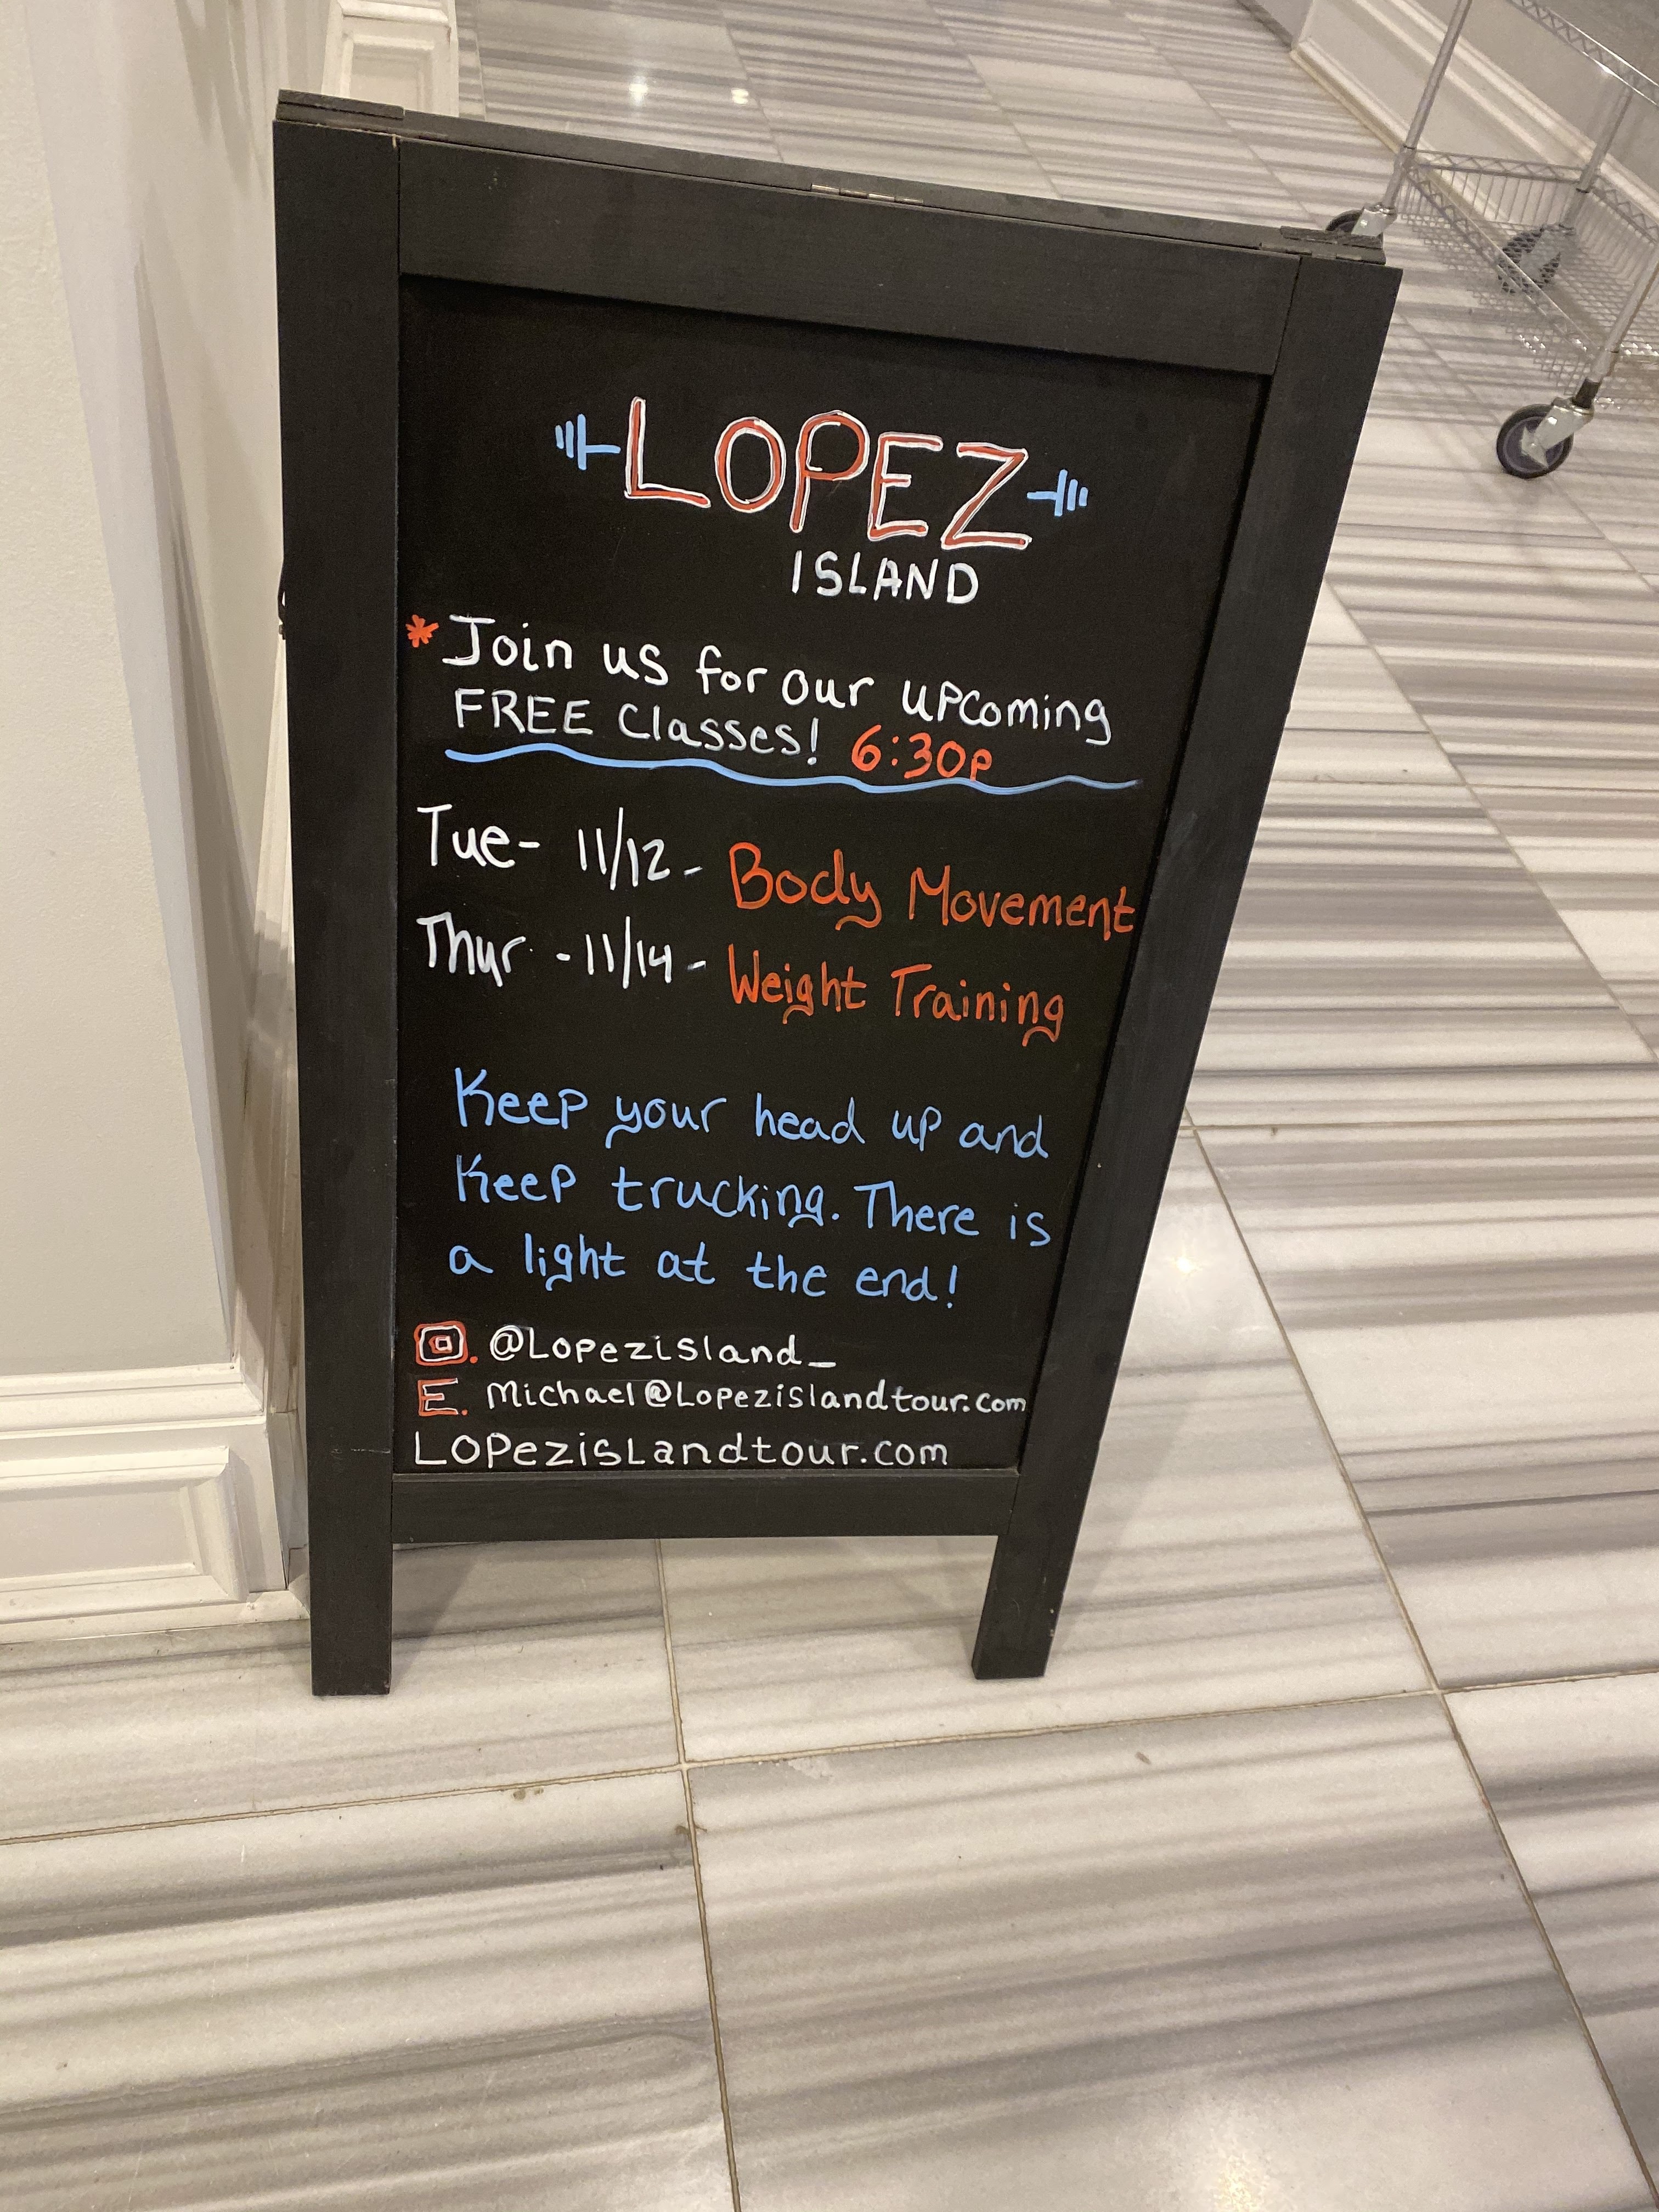 LOPEZ
ISLAND
*Join us for our upcoming
FREE Classes! 6:30p
Tue- 11/12- Body Movement
Thur -11/14- Weight Training
Keep your head up and
Keep trucking. There is
a light at the end!
@Lopezisland_
E. Michael@Lopezislandtour.com
Lopezislandtour.com